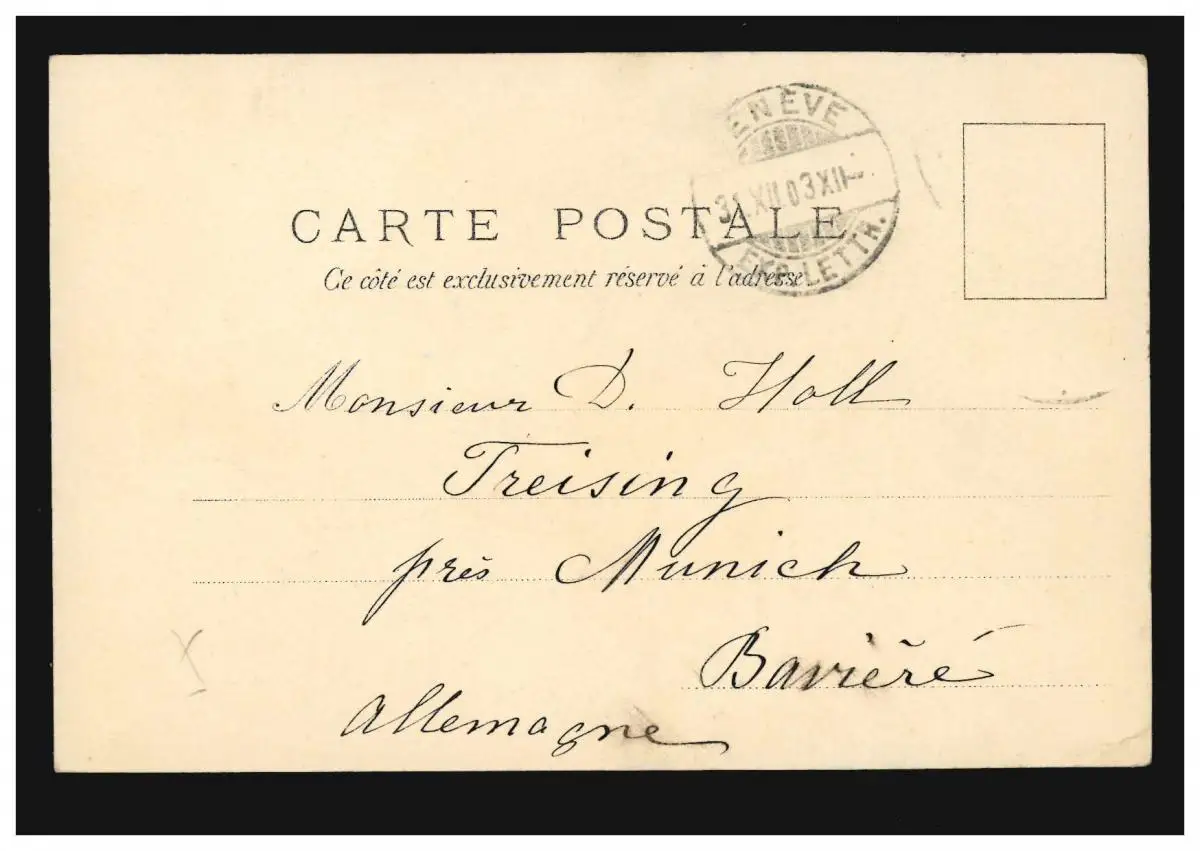 ENÈVE
31.XII 03 XII—
EXP. LETTR.
CARTE POSTALE
Ce côté est exclusivement réservé à l'adresse
Monsieur D. Holl
Freising
près Munich
Bavière
Allemagne